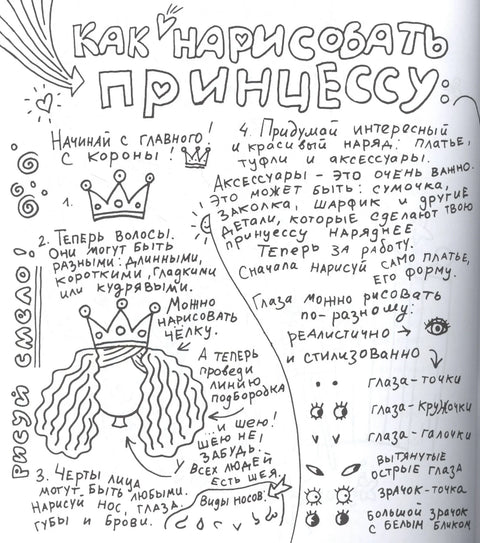 КАК НАРИСОВАТЬ
ПРИНЦЕССУ:
НАЧИНАЙ С ГЛАВНОГО!
С КОРОНЫ!
1.
2. ТЕПЕРЬ ВОЛОСЫ.
ОНИ МОГУТ БЫТЬ
РАЗНЫМИ: ДЛИННЫМИ,
КОРОТКИМИ, ГЛАДКИМИ
ИЛИ КУДРЯВЫМИ.
МОЖНО
НАРИСОВАТЬ
ЧЁЛКУ.
А ТЕПЕРЬ
ПРОВЕДИ
ЛИНИЮ
ПОДБОРОДКА
...И ШЕЮ!
ШЕЮ НЕ
ЗАБУДЬ.
У ВСЕХ ЛЮДЕЙ
ЕСТЬ ШЕЯ.
РИСУЙ СМЕЛО!
3. ЧЕРТЫ ЛИЦА
МОГУТ БЫТЬ ЛЮБЫМИ.
НАРИСУЙ НОС, ГЛАЗА,
ГУБЫ И БРОВИ.
ВИДЫ НОСОВ:
4. ПРИДУМАЙ ИНТЕРЕСНЫЙ
И КРАСИВЫЙ НАРЯД: ПЛАТЬЕ,
ТУФЛИ И АКСЕССУАРЫ.
АКСЕССУАРЫ – ЭТО ОЧЕНЬ ВАЖНО.
ЭТО МОЖЕТ БЫТЬ: СУМОЧКА,
ЗАКОЛКА, ШАРФИК И ДРУГИЕ
ДЕТАЛИ, КОТОРЫЕ СДЕЛАЮТ ТВОЮ
ПРИНЦЕССУ НАРЯДНЕЕ
ТЕПЕРЬ ЗА РАБОТУ.
СНАЧАЛА НАРИСУЙ САМО ПЛАТЬЕ,
ЕГО ФОРМУ.
ГЛАЗА МОЖНО РИСОВАТЬ
ПО-РАЗНОМУ:
РЕАЛИСТИЧНО
И СТИЛИЗОВАННО
ГЛАЗА-ТОЧКИ
ГЛАЗА-КРУЖОЧКИ
ГЛАЗА-ГАЛОЧКИ
ВЫТЯНУТЫЕ
ОСТРЫЕ ГЛАЗА
ЗРАЧОК-ТОЧКА
БОЛЬШОЙ ЗРАЧОК
С БЕЛЫМ БЛИКОМ